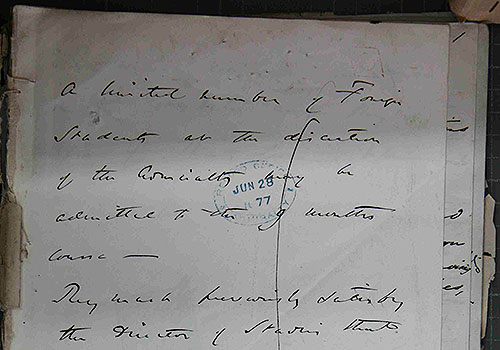 A limited number of Foreign
Students at the discretion
of the Admiralty may be
admitted to the 9 months
course —
They must previously satisfy
the Director of Studies that
JUN 28
77